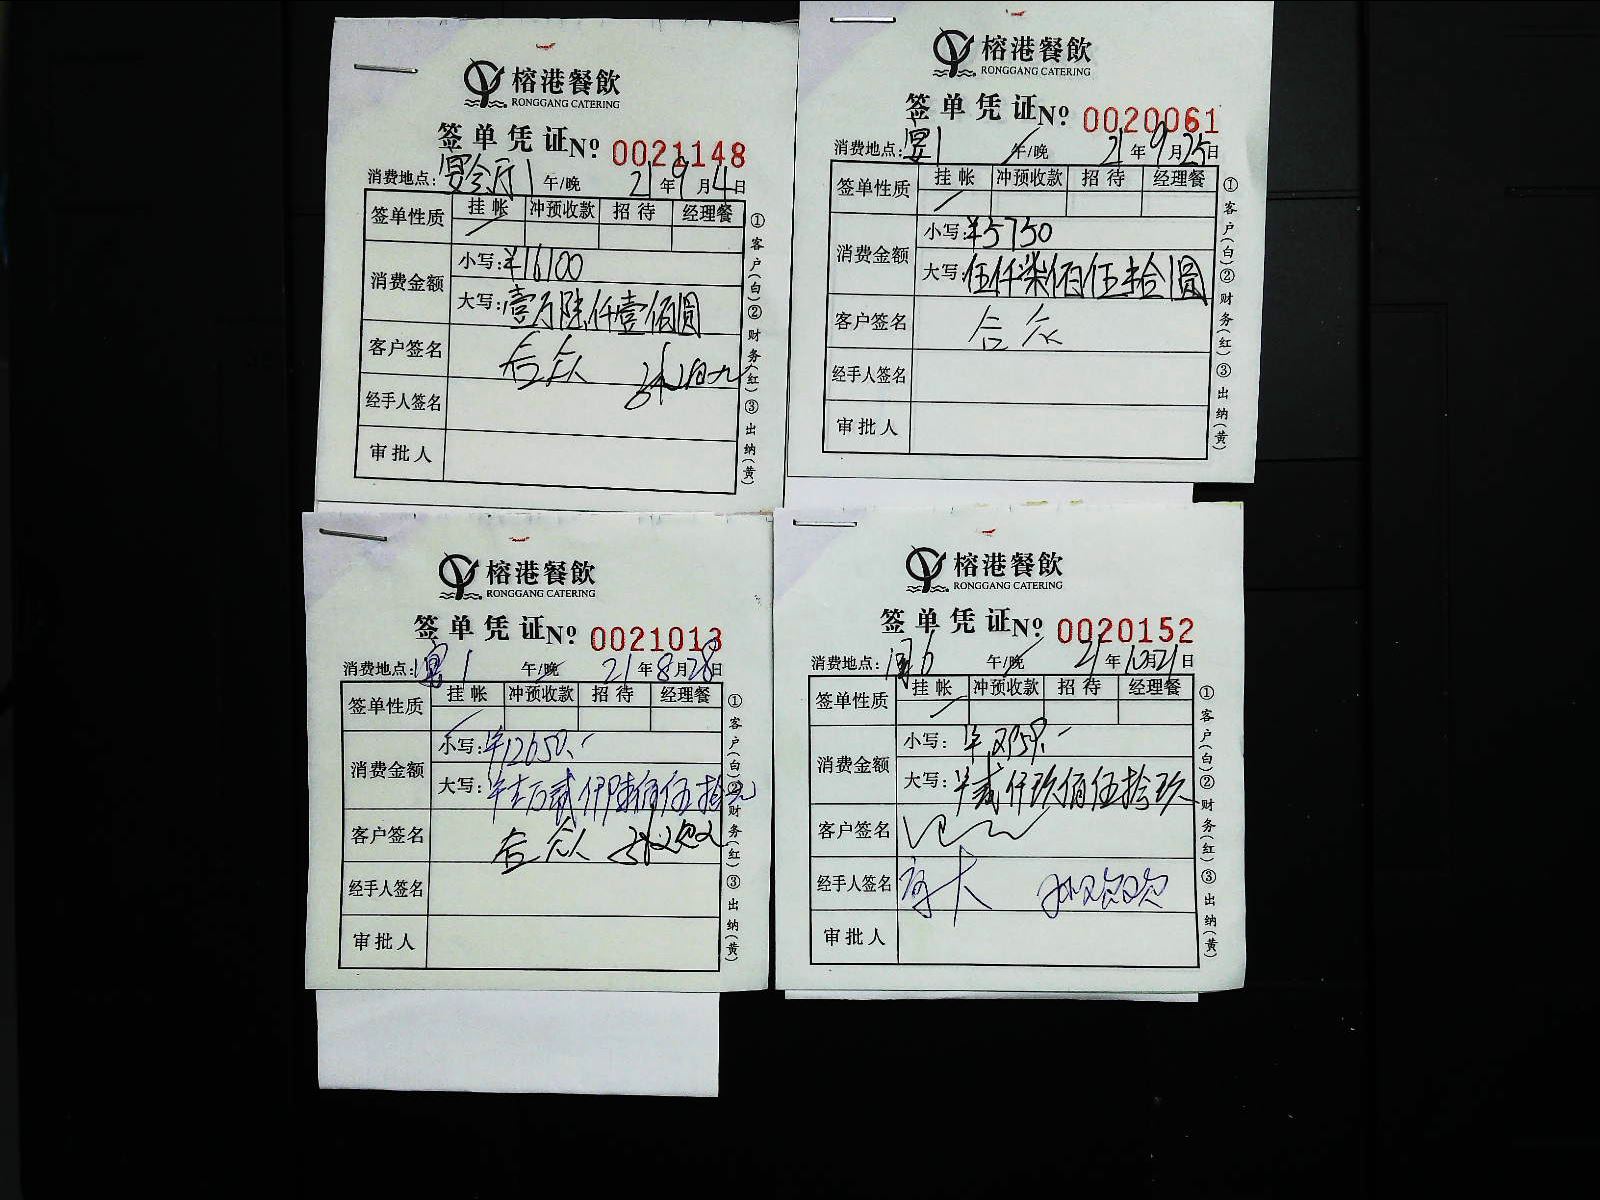 榕港餐飲
RONGGANG CATERING
签单凭证 Nº 0021148
消费地点: 宴会厅1 午/晚 21年9月4日
签单性质 挂帐 冲预收款 招待 经理餐
消费金额 小写: ¥16100
大写: 壹万陆仟壹佰圆
客户签名 合众
经手人签名
审批人
①客户(白)②财务(红)③出纳(黄)
榕港餐飲
RONGGANG CATERING
签单凭证 Nº 0020061
消费地点: 宴1 午/晚 21年9月25日
签单性质 挂帐 冲预收款 招待 经理餐
消费金额 小写: ¥5750
大写: 伍仟柒佰伍拾圆
客户签名 合众
经手人签名
审批人
①客户(白)②财务(红)③出纳(黄)
榕港餐飲
RONGGANG CATERING
签单凭证 Nº 0021013
消费地点: 宴1 午/晚 21年8月28日
签单性质 挂帐 冲预收款 招待 经理餐
消费金额 小写: ¥12650.-
大写: 壹万贰仟陆佰伍拾元
客户签名 合众
经手人签名
审批人
①客户(白)②财务(红)③出纳(黄)
榕港餐飲
RONGGANG CATERING
签单凭证 Nº 0020152
消费地点: 午/晚 21年10月21日
签单性质 挂帐 冲预收款 招待 经理餐
消费金额 小写:
大写: 贰仟玖佰伍拾玖
客户签名
经手人签名
审批人
①客户(白)②财务(红)③出纳(黄)